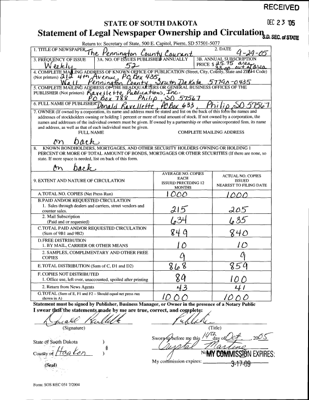 RECEIVED
DEC 23 '05
S.D. SEC. OF STATE
STATE OF SOUTH DAKOTA
Statement of Legal Newspaper Ownership and Circulation
Return to: Secretary of State, 500 E. Capitol, Pierre, SD 57501-5077
1. TITLE OF NEWSPAPER
The Pennington County Courant
2. DATE
9-29-05
3. FREQUENCY OF ISSUE
Weekly
3A. NO. OF ISSUES PUBLISHED ANNUALLY
52
3B. ANNUAL SUBSCRIPTION
PRICE $
4. COMPLETE MAILING ADDRESS OF KNOWN OFFICE OF PUBLICATION (Street, City, County, State and Zip+4 Code)
(Not printer) 212 4th Avenue, PO Box 435
Wall Pennington County South Dakota 57790-0435
5. COMPLETE MAILING ADDRESS OF THE HEADQUARTERS OR GENERAL BUSINESS OFFICES OF THE
PUBLISHER (Not printer) Ravellette Publications, Inc.
PO Box 788 Philip SD 57567
6. FULL NAME OF PUBLISHER:
Donald Ravellette PO Box 635 Philip SD 57567
7. OWNER (If owned by a corporation, its name and address must be stated and also on the back of this form the names and
addresses of stockholders owning or holding 1 percent or more of total amount of stock. If not owned by a corporation, the
names and addresses of the individual owners must be given. If owned by a partnership or other unincorporated firm, its name
and address, as well as that of each individual must be given.
FULL NAME
COMPLETE MAILING ADDRESS
on back
8. KNOWN BONDHOLDERS, MORTGAGES, AND OTHER SECURITY HOLDERS OWNING OR HOLDING 1
PERCENT OR MORE OF TOTAL AMOUNT OF BONDS, MORTGAGES OR OTHER SECURITIES (If there are none, so
state. If more space is needed, list on back of this form.
on back
9. EXTENT AND NATURE OF CIRCULATION
AVERAGE NO. COPIES
EACH
ISSUED PRECEDING 12
MONTHS
ACTUAL NO. COPIES
ISSUED
NEAREST TO FILING DATE
A. TOTAL NO. COPIES (Net Press Run)
1000
1000
B. PAID AND/OR REQUESTED CIRCULATION
1. Sales through dealers and carriers, street vendors and
counter sales.
215
205
2. Mail Subscription
(Paid and or requested)
634
635
C. TOTAL PAID AND/OR REQUESTED CIRCULATION
(Sum of 9B1 and 9B2)
849
840
D. FREE DISTRIBUTION
1. BY MAIL, CARRIER OR OTHER MEANS
10
10
2. SAMPLES, COMPLIMENTARY AND OTHER FREE
COPIES
9
9
E. TOTAL DISTRIBUTION (Sum of C, D1 and D2)
868
859
F. COPIES NOT DISTRIBUTED
1. Office use, left over, unaccounted, spoiled after printing
89
100
2. Return from News Agents
43
41
G. TOTAL (Sum of E, F1 and F2 - Should equal net press run
shown in A)
1000
1000
Statement must be signed by Publisher, Business Manager, or Owner in the presence of a Notary Public
I swear that the statements made by me are true, correct, and complete:
(Signature)
(Title)
State of South Dakota )
County of Haakon )
Sworn before me this 14th day of Oct 2005
Crystal Martin
My commission expires:
MY COMMISSION EXPIRES:
3-17-09
(Seal)